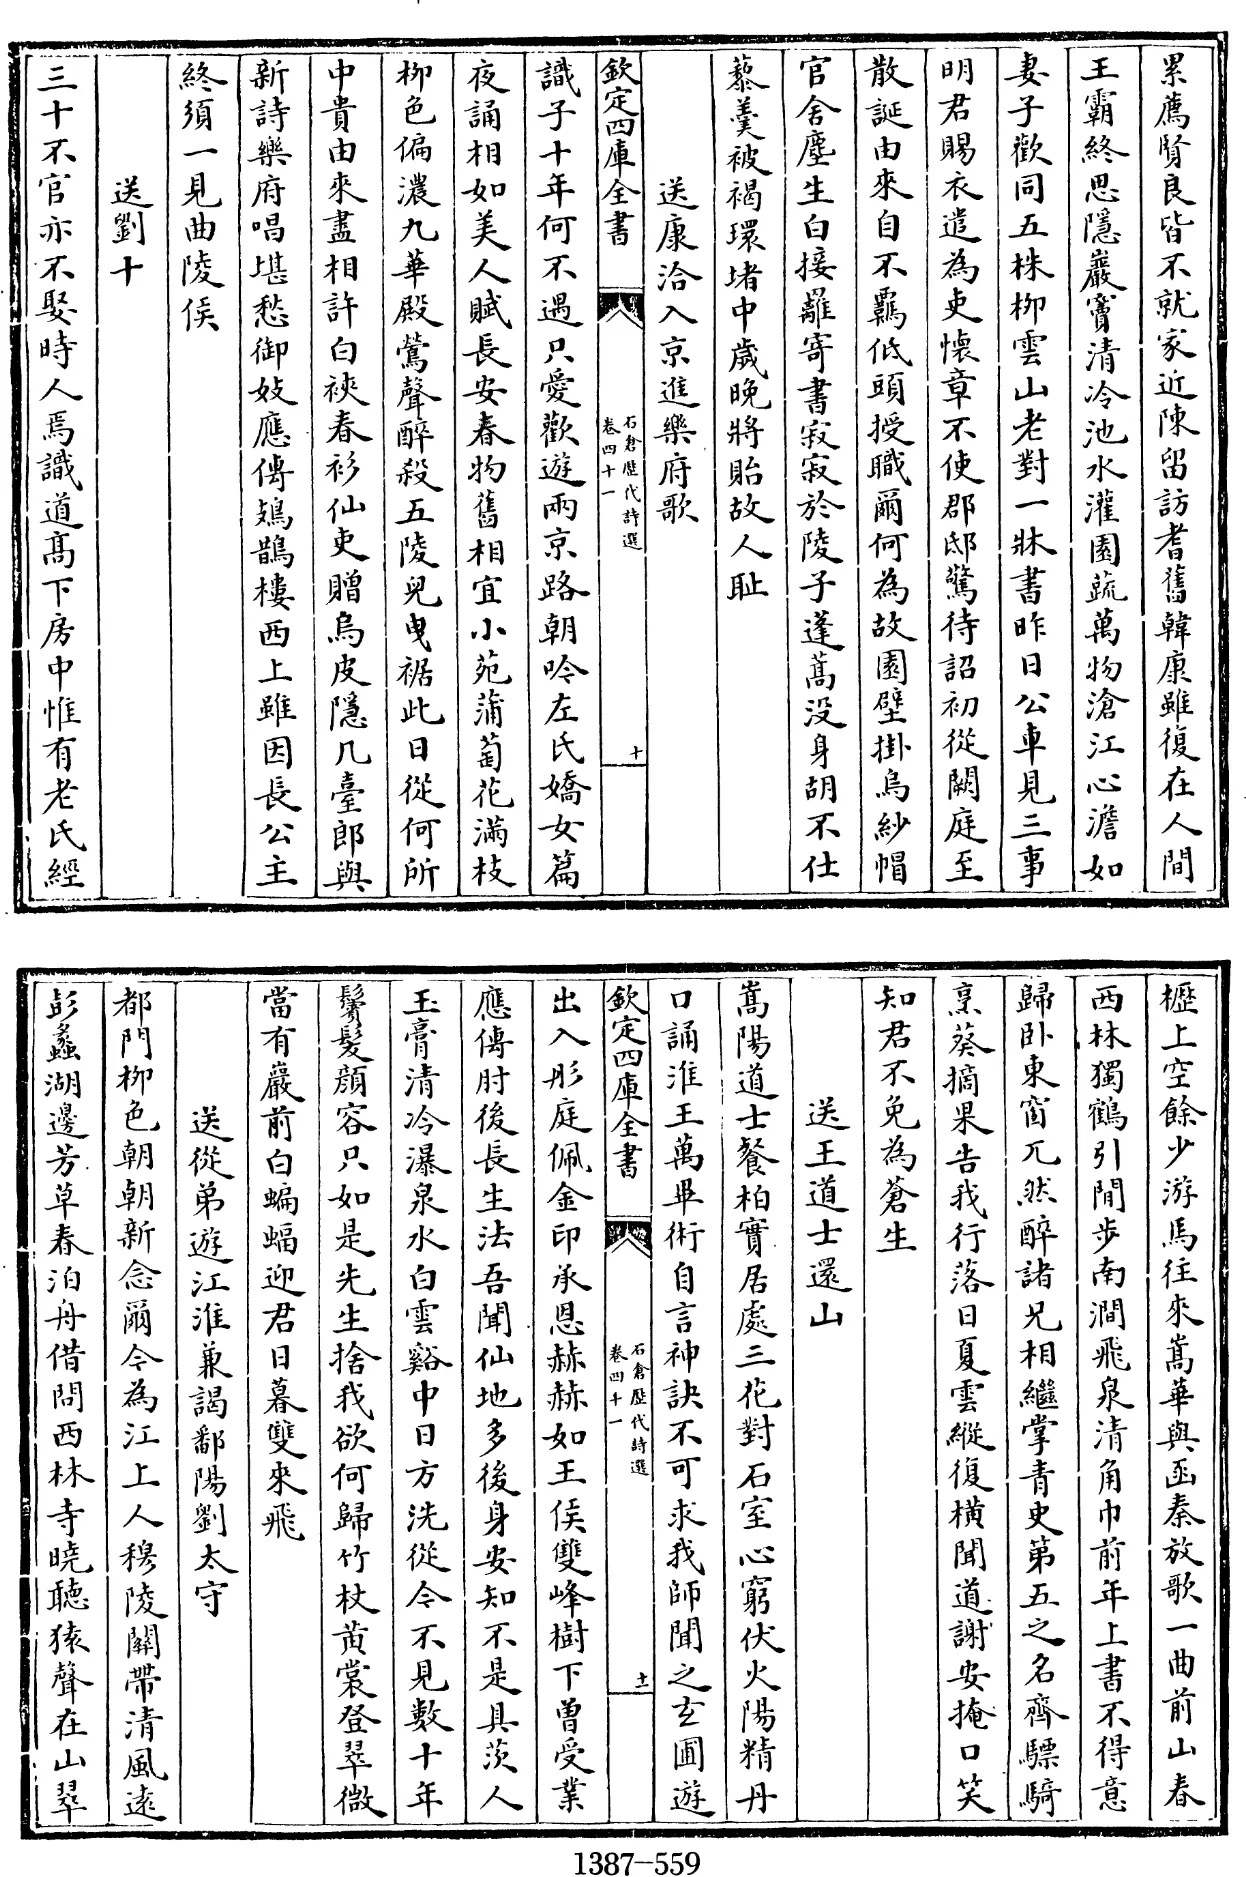 累薦賢良皆不就家近陳留訪耆舊韓康雖復在人間
王霸終思隱巖竇清冷池水灌園蔬萬物滄江心澹如
妻子歡同五株柳雲山老對一牀書昨日公車見三事
明君賜衣遣為吏懷章不使郡邸驚待詔初從闕庭至
散誕由來自不羈低頭授職爾何為故園壁掛烏紗帽
官舍塵生白接䍦寄書寂寂於陵子蓬蒿没身胡不仕
藜羹被褐環堵中歲晚將貽故人恥
送康洽入京進樂府歌
欽定四庫全書
石倉歷代詩選
卷四十一
十
識子十年何不遇只愛歡遊兩京路朝吟左氏嬌女篇
夜誦相如美人賦長安春物舊相宜小苑蒲萄花滿枝
柳色偏濃九華殿鶯聲醉殺五陵兒曳裾此日從何所
中貴由來盡相許白裌春衫仙吏贈烏皮隱几臺郎與
新詩樂府唱堪愁御妓應傳鳷鵲樓西上雖因長公主
終須一見曲陵侯
送劉十
三十不官亦不娶時人焉識道髙下房中惟有老氏經
櫪上空餘少游馬往來嵩華與函秦放歌一曲前山春
西林獨鶴引閒步南澗飛泉清角巾前年上書不得意
歸卧東窗兀然醉諸兄相繼掌青史第五之名齊驃騎
烹葵摘果告我行落日夏雲縱復横聞道謝安掩口笑
知君不免為蒼生
送王道士還山
嵩陽道士餐柏實居處三花對石室心窮伏火陽精丹
口誦淮王萬畢術自言神訣不可求我師聞之玄圃遊
欽定四庫全書
石倉歷代詩選
卷四十一
十一
出入彤庭佩金印承恩赫赫如王侯雙峰樹下曾受業
應傳肘後長生法吾聞仙地多後身安知不是具茨人
玉膏清冷瀑泉水白雲谿中日方洗從令不見數十年
鬢髮顔容只如是先生捨我欲何歸竹杖黄裳登翠微
當有巖前白蝙蝠迎君日暮雙來飛
送從弟遊江淮兼謁鄱陽劉太守
都門柳色朝朝新念爾今為江上人穆陵關帶清風遠
彭蠡湖邊芳草春泊舟借問西林寺曉聽猿聲在山翠
1387—559